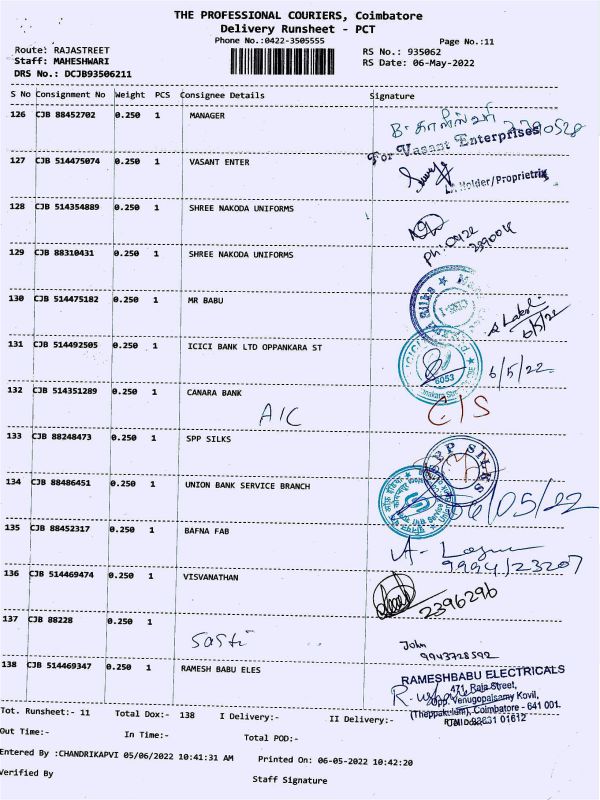 THE PROFESSIONAL COURIERS, Coimbatore
Delivery Runsheet - PCT
Phone No.:0422-3505555 Page No.:11
Route: RAJASTREET RS No.: 935062
Staff: MAHESHWARI RS Date: 06-May-2022
DRS No.: DCJB93506211
S No Consignment No Weight PCS Consignee Details Signature
126 CJB 88452702 0.250 1 MANAGER
For Vasant Enterprises
127 CJB 514475074 0.250 1 VASANT ENTER
Holder/Proprietrix
128 CJB 514354889 0.250 1 SHREE NAKODA UNIFORMS
129 CJB 88310431 0.250 1 SHREE NAKODA UNIFORMS
Ph: 0422
130 CJB 514475182 0.250 1 MR BABU
6/5/22
131 CJB 514492505 0.250 1 ICICI BANK LTD OPPANKARA ST
6053
6/5/22
132 CJB 514351289 0.250 1 CANARA BANK
A/C C/S
133 CJB 88248473 0.250 1 SPP SILKS
SPP SILKS
134 CJB 88486451 0.250 1 UNION BANK SERVICE BRANCH
06/05/22
135 CJB 88452317 0.250 1 BAFNA FAB
9994123207
136 CJB 514469474 0.250 1 VISVANATHAN
2396296
137 CJB 88228 0.250 1
Sasti John
9943728592
138 CJB 514469347 0.250 1 RAMESH BABU ELES
RAMESHBABU ELECTRICALS
471, Raja Street,
Opp. Venugopalsamy Kovil,
(Theppakulam), Coimbatore - 641 001.
01612
Tot. Runsheet:- 11 Total Dox:- 138 I Delivery:- II Delivery:-
Out Time:- In Time:- Total POD:-
Entered By :CHANDRIKAPVI 05/06/2022 10:41:31 AM Printed On: 06-05-2022 10:42:20
Verified By Staff Signature